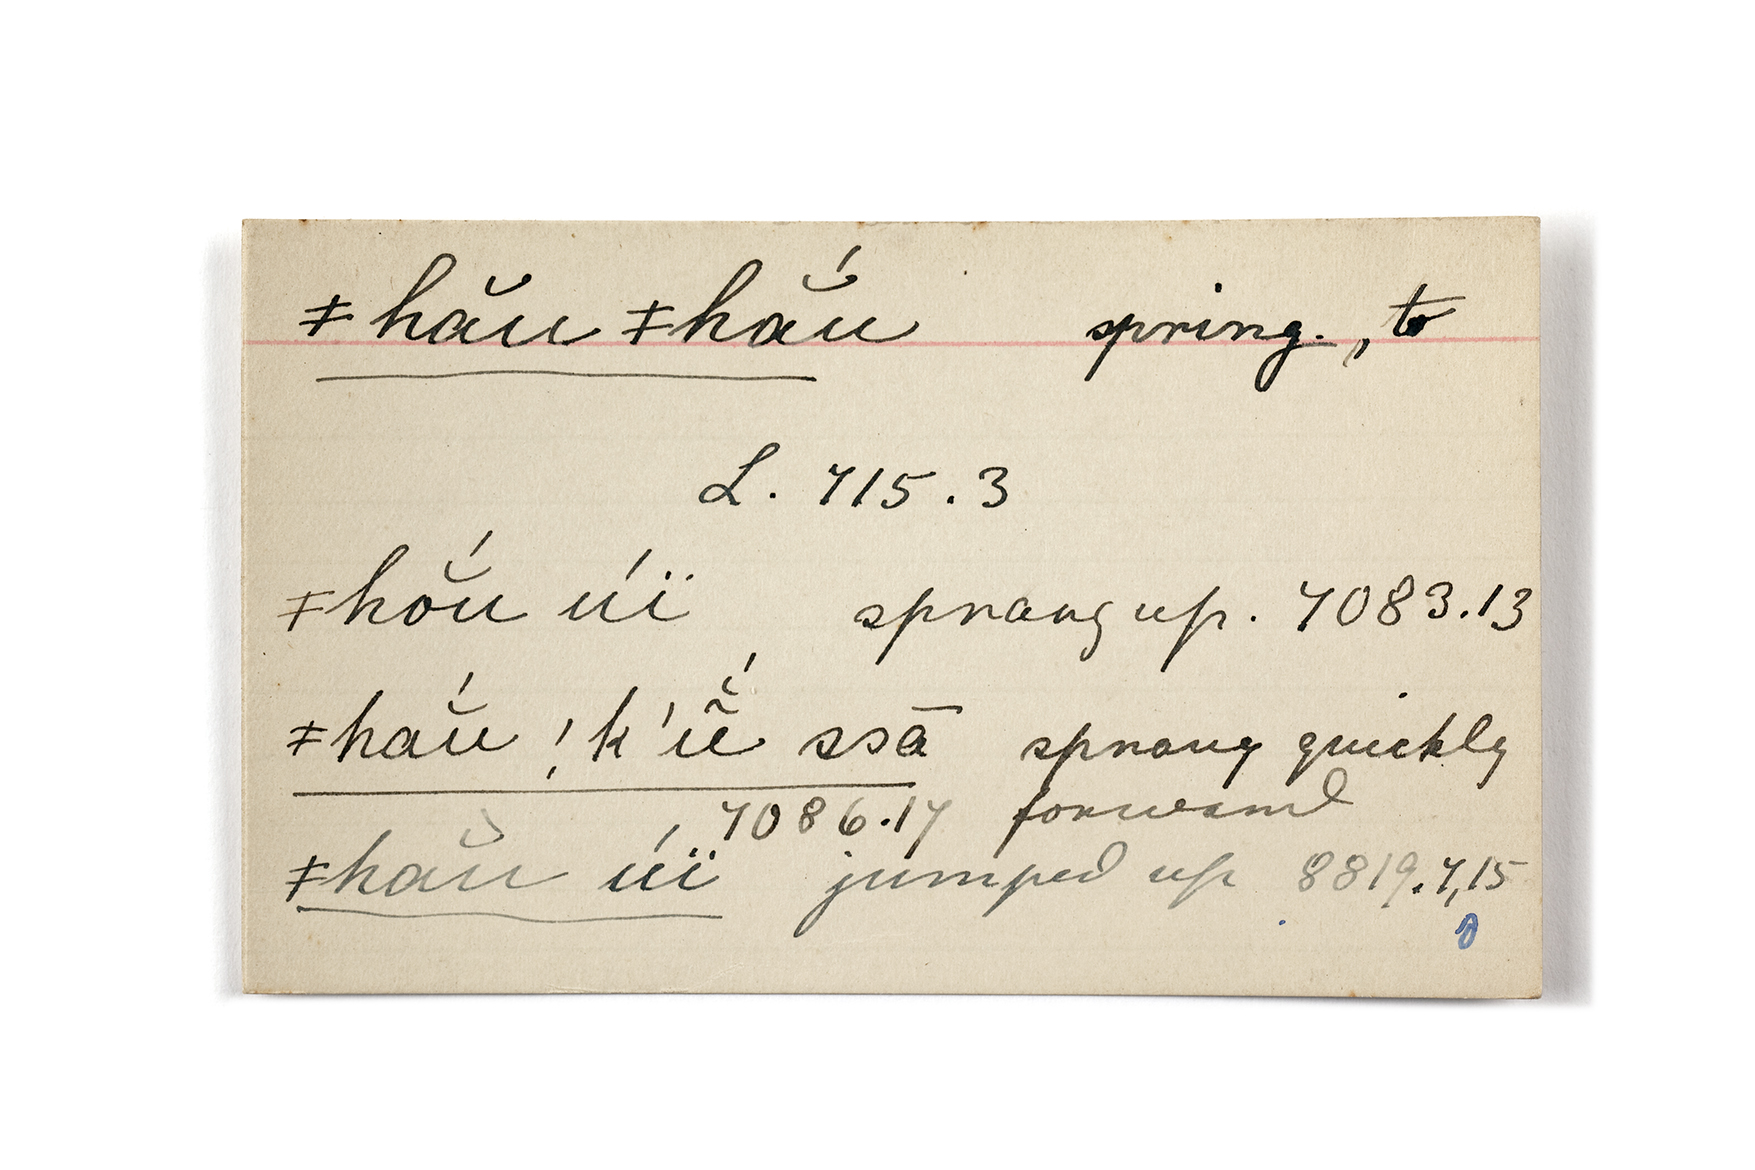 ǂhău ǂhắu spring., to
L. 715.3
ǂhŏ́u úï sprang up. 7083.13
ǂhắu !k'ữ̆́ ssā sprang quickly
7086.17 forward
ǂhắu úï jumped up 8819.7,15